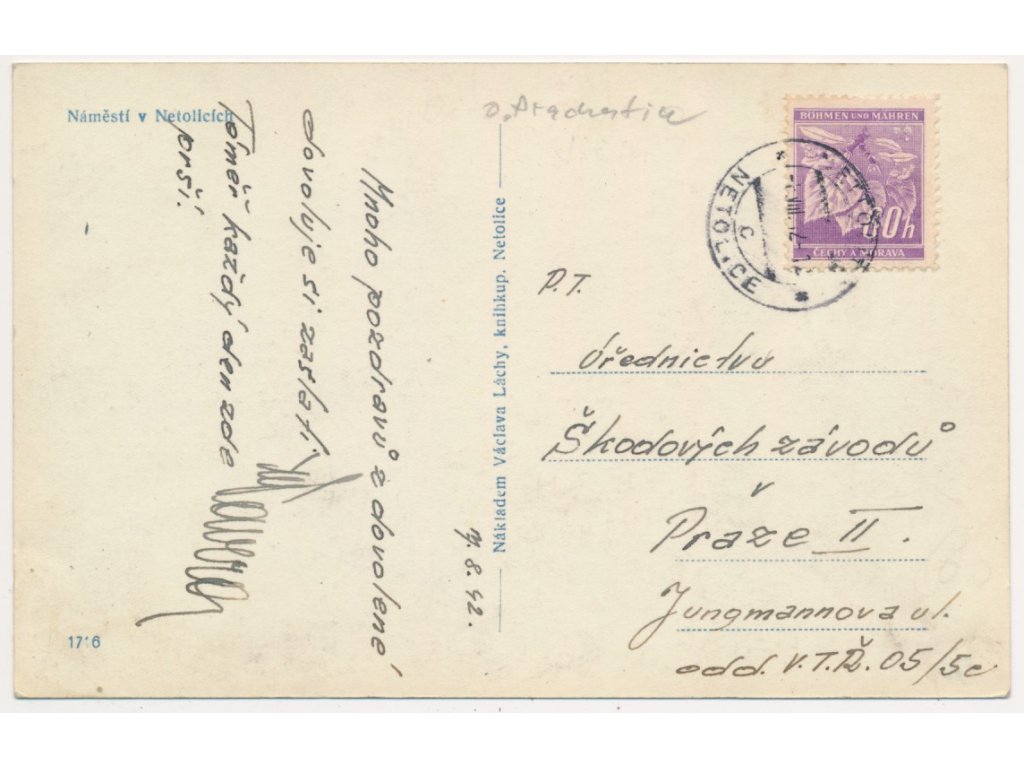 Náměstí v Netolicích
Mnoho pozdravů z dovolené
dovoluje si zaslati.
Téměř každý den zde
prší.
14.8.42.
1716
Nákladem Václava Láchy, knihkup. Netolice
BÖHMEN UND MÄHREN
60h
ČECHY A MORAVA
NETOLICE
C
P.T.
Úřednictvu
Škodových závodů
v
Praze II.
Jungmannova ul.
odd. V.T.Ř. 05/5c